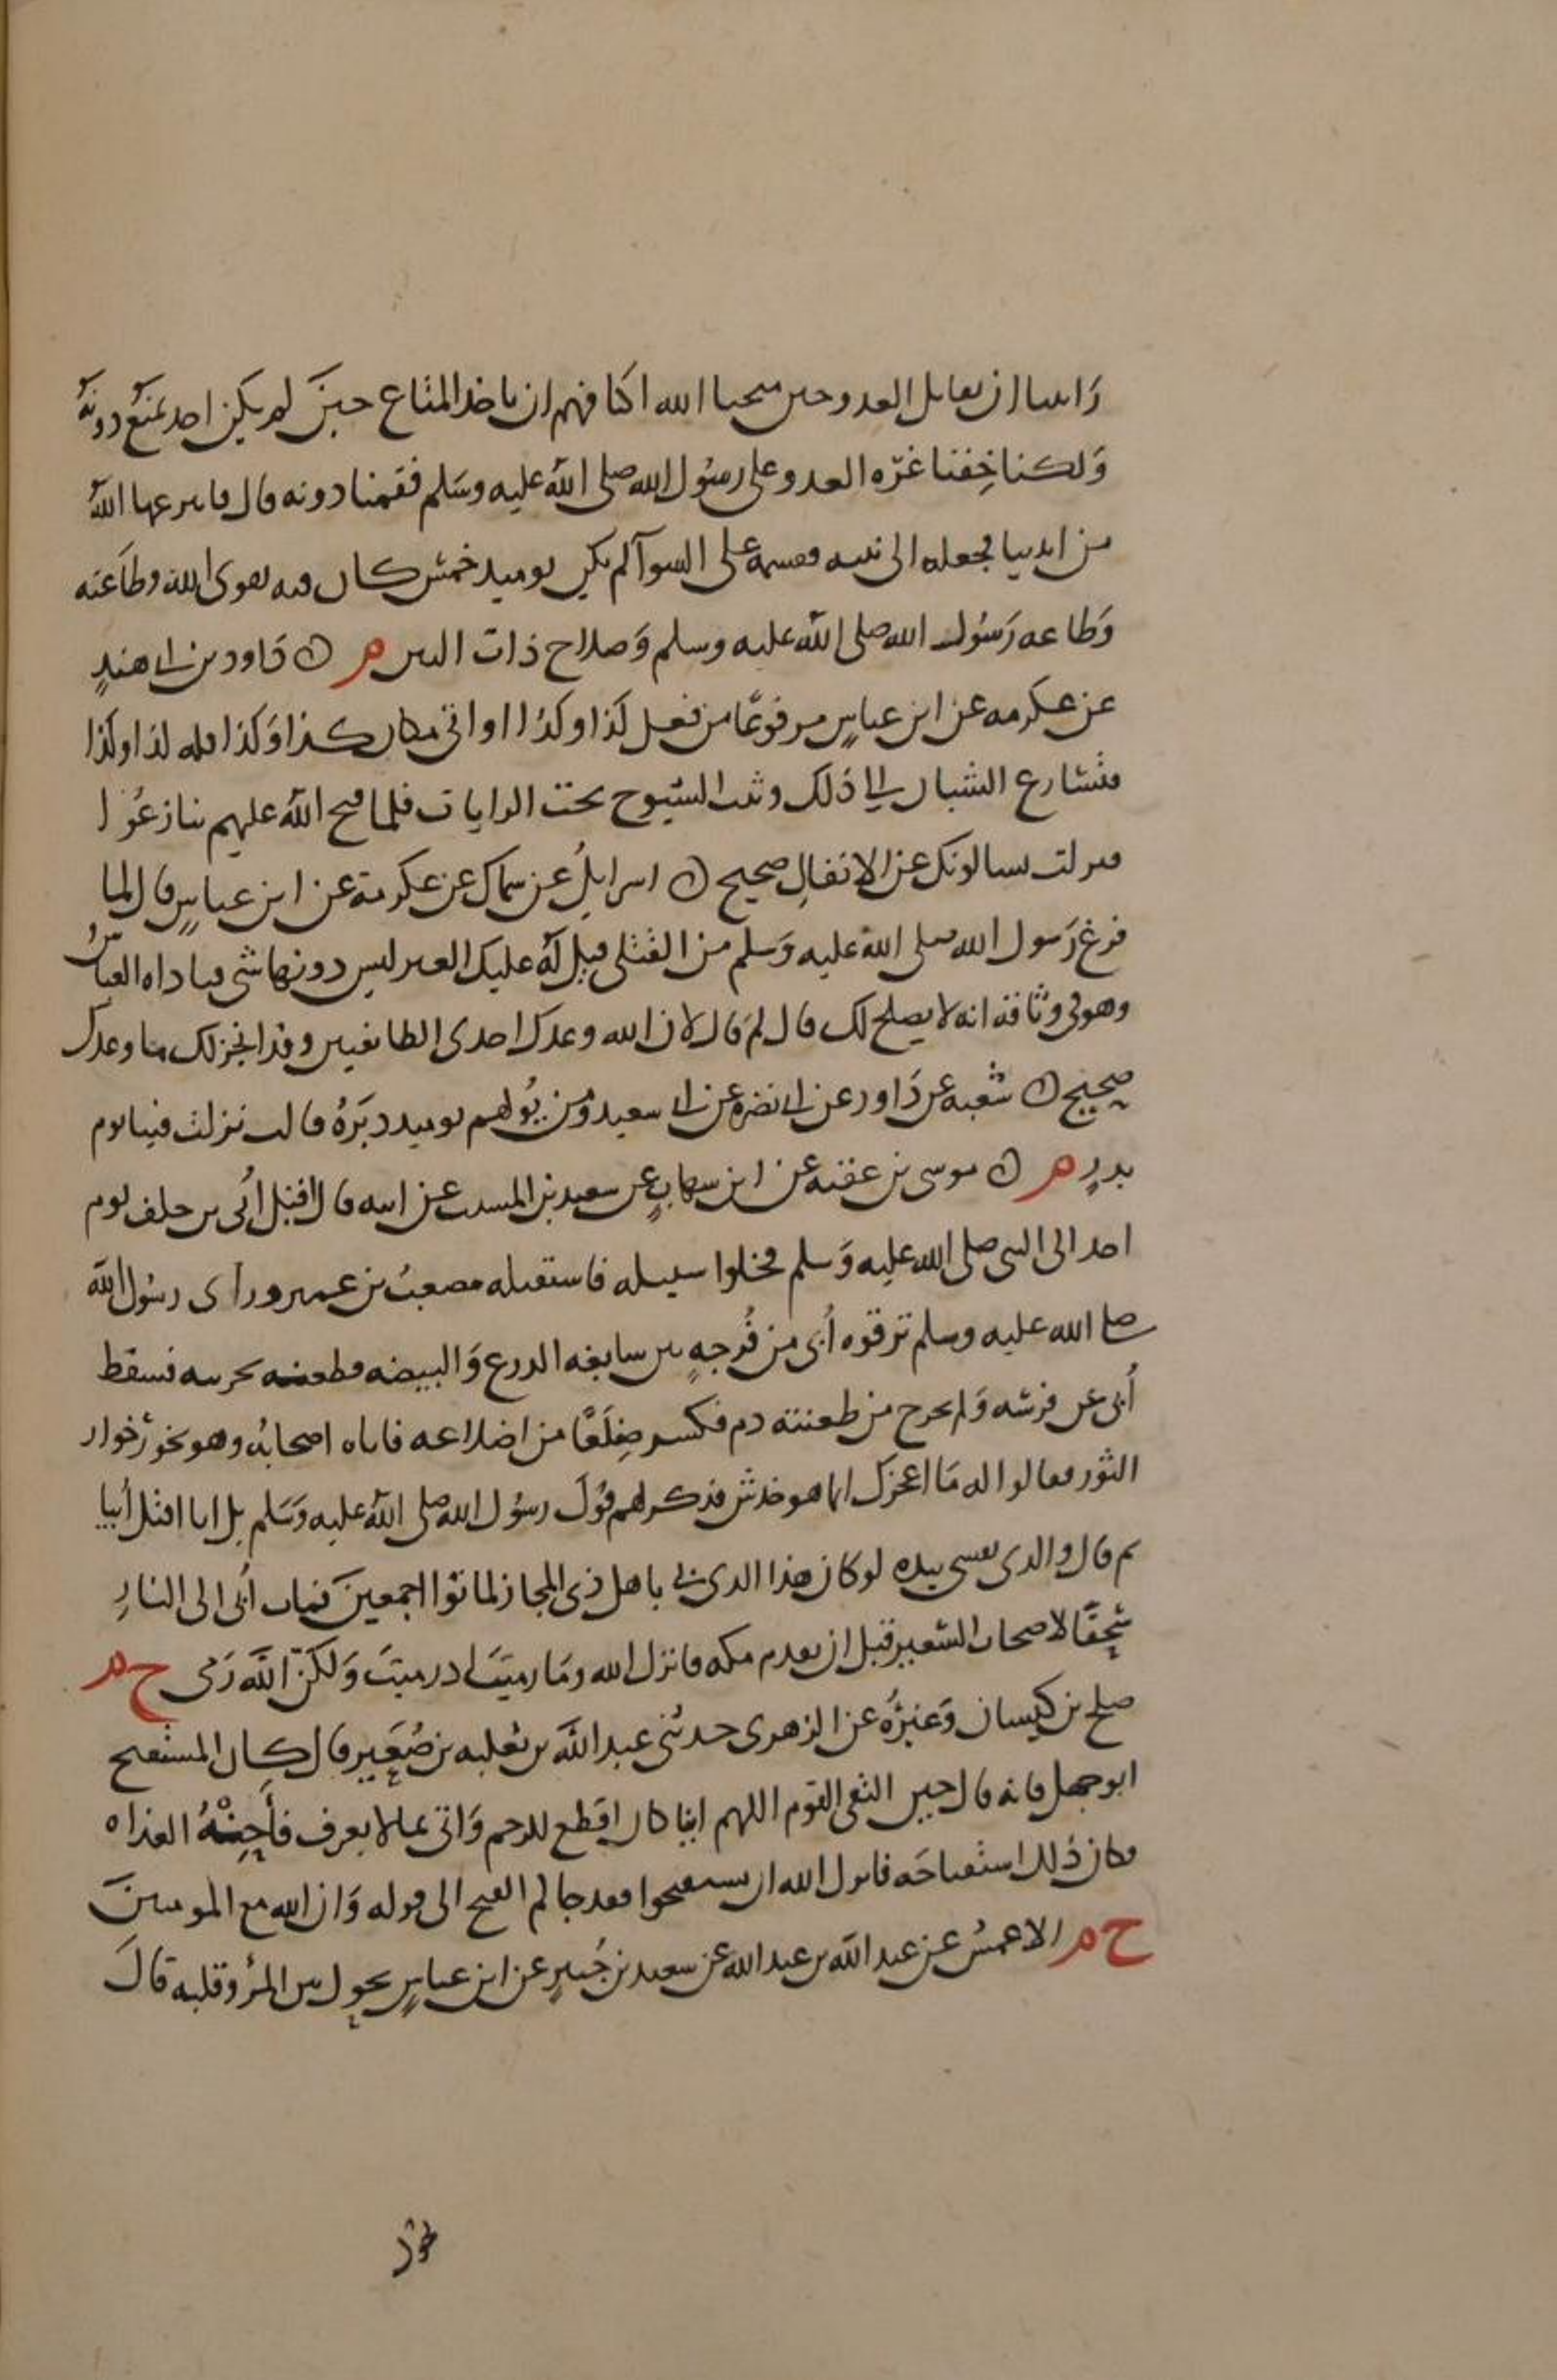 رَاينا ان نقاتل العدو حين منحنا الله اكتافهم ان ناخذ المتاع حينَ لم يكن احد يمنَع دونهُ
وَلكنا خِفنا غرّه العدو على رسُول الله صلى اللهُ عليه وسَلم فقمنا دونه قال فانتزعها اللهُ
من ايدينا فجعله الى نبيه فقسمه على السوآ لم يكن يوميد خمسُ كان فيه تقوى الله وطاعته
وَطاعه رَسُول الله صلى اللهُ عليه وسلم وَصلاح ذات البين م ن دَاود بن ابى هندٍ
عن عكرمه عن ابن عباسٍ مرفوعًا من فعل كَذا وكذَا او اتى مكان كذا وَكذا فله كذا وكذا
فتسَارع الشبان الى ذَلك وثبت الشيوخ تحت الرايات فلما فتح اللهُ عليهم تنازعُوا
فنزلت يسالونك عن الانفالِ صحيح ن اسراىيلُ عن سماك عن عكرمة عن ابن عباسٍ قال لما
فرغ رَسول الله صلى اللهُ عليه وَسلم من القتلى قيل لَهُ عليك العير ليس دونها شى فناداه العباسُ
وهو فى وثاقه انه لا يصلح لك قال لمَ قال لان الله وعدك احدى الطائفتين وقد انجز لك ما وعدك
صحيح ن شُعبه عن دَاود عن ابى نضره عن ابى سعيد ومن يُولهم يوميد دبَرَهُ قالت نزلت فينا يوم
بدرٍ م ن موسى بن عقبه عن ابن شهابٍ عن سعيد بن المسيب عن ابيه قال اقبل اُبى بن خلف يوم
احد الى النبى صلى الله عليه وَسلم فخلوا سبيله فاستقبله مصعبُ بن عمير وراَى رسُول الله
صلى الله عليه وسلم ترقوه اُبى من فُرجهٍ بين سابغه الدرع وَالبيضه فطعنه بحربته فسقط
اُبى عن فرسه وَلم يخرج من طعنته دم فكسر ضِلَعًا من اضلاعه فاتاه اصحابُه وهو يخورُ خوار
الثور فقالوا له مَا اعجزك انما هو خدش فذكر لهم قولَ رسُول الله صلى اللهُ عليه وَسَلم بل انا اقتل اُبيا
ثم قال والدى نفسى بيده لو كان هَذا الدى بى باهل ذى المجاز لماتوُا اجمعينَ فمات اُبى الى النارِ
سُحقًا لاصحاب السَعير قبل ان يقدم مكه فانزل الله ومَا رميتَ اذ رميتَ وَلكنّ اللهَ رَمى خ م
صلح بن كيسان وَغيرُه عن الزهرى حدثنى عبد اللهَ بن ثعلبه بن صُعَيرٍ قال كان المستفتح
ابو جهل فانه قال حين التقى القوم اللهم اينا كان اقطع للرحم وَاتى بما لا يعرف فأَحِنْهُ الغداه
فكان ذَلك استفتاحَه فانزل الله ان تستفتحوا فقد جاكم الفتح الى قوله وَان الله مع المومنينَ
خ م الاعمشُ عن عبد الله بن عبد الله عن سعيد بن جُبيرٍ عن ابن عباسٍ يحول بين المرُؤ وقلبه قالَ